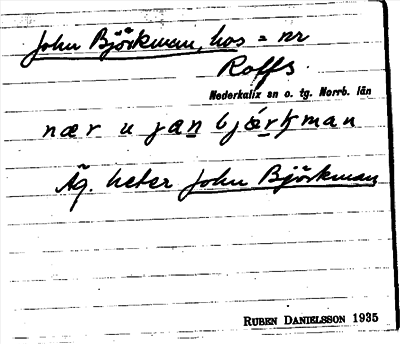 John Björkman, hos = nr
Roffs.
Nederkalix sn o. tg. Norrb. län
nær u jan bjærkman
Äg. heter John Björkman
RUBEN DANIELSSON 1935